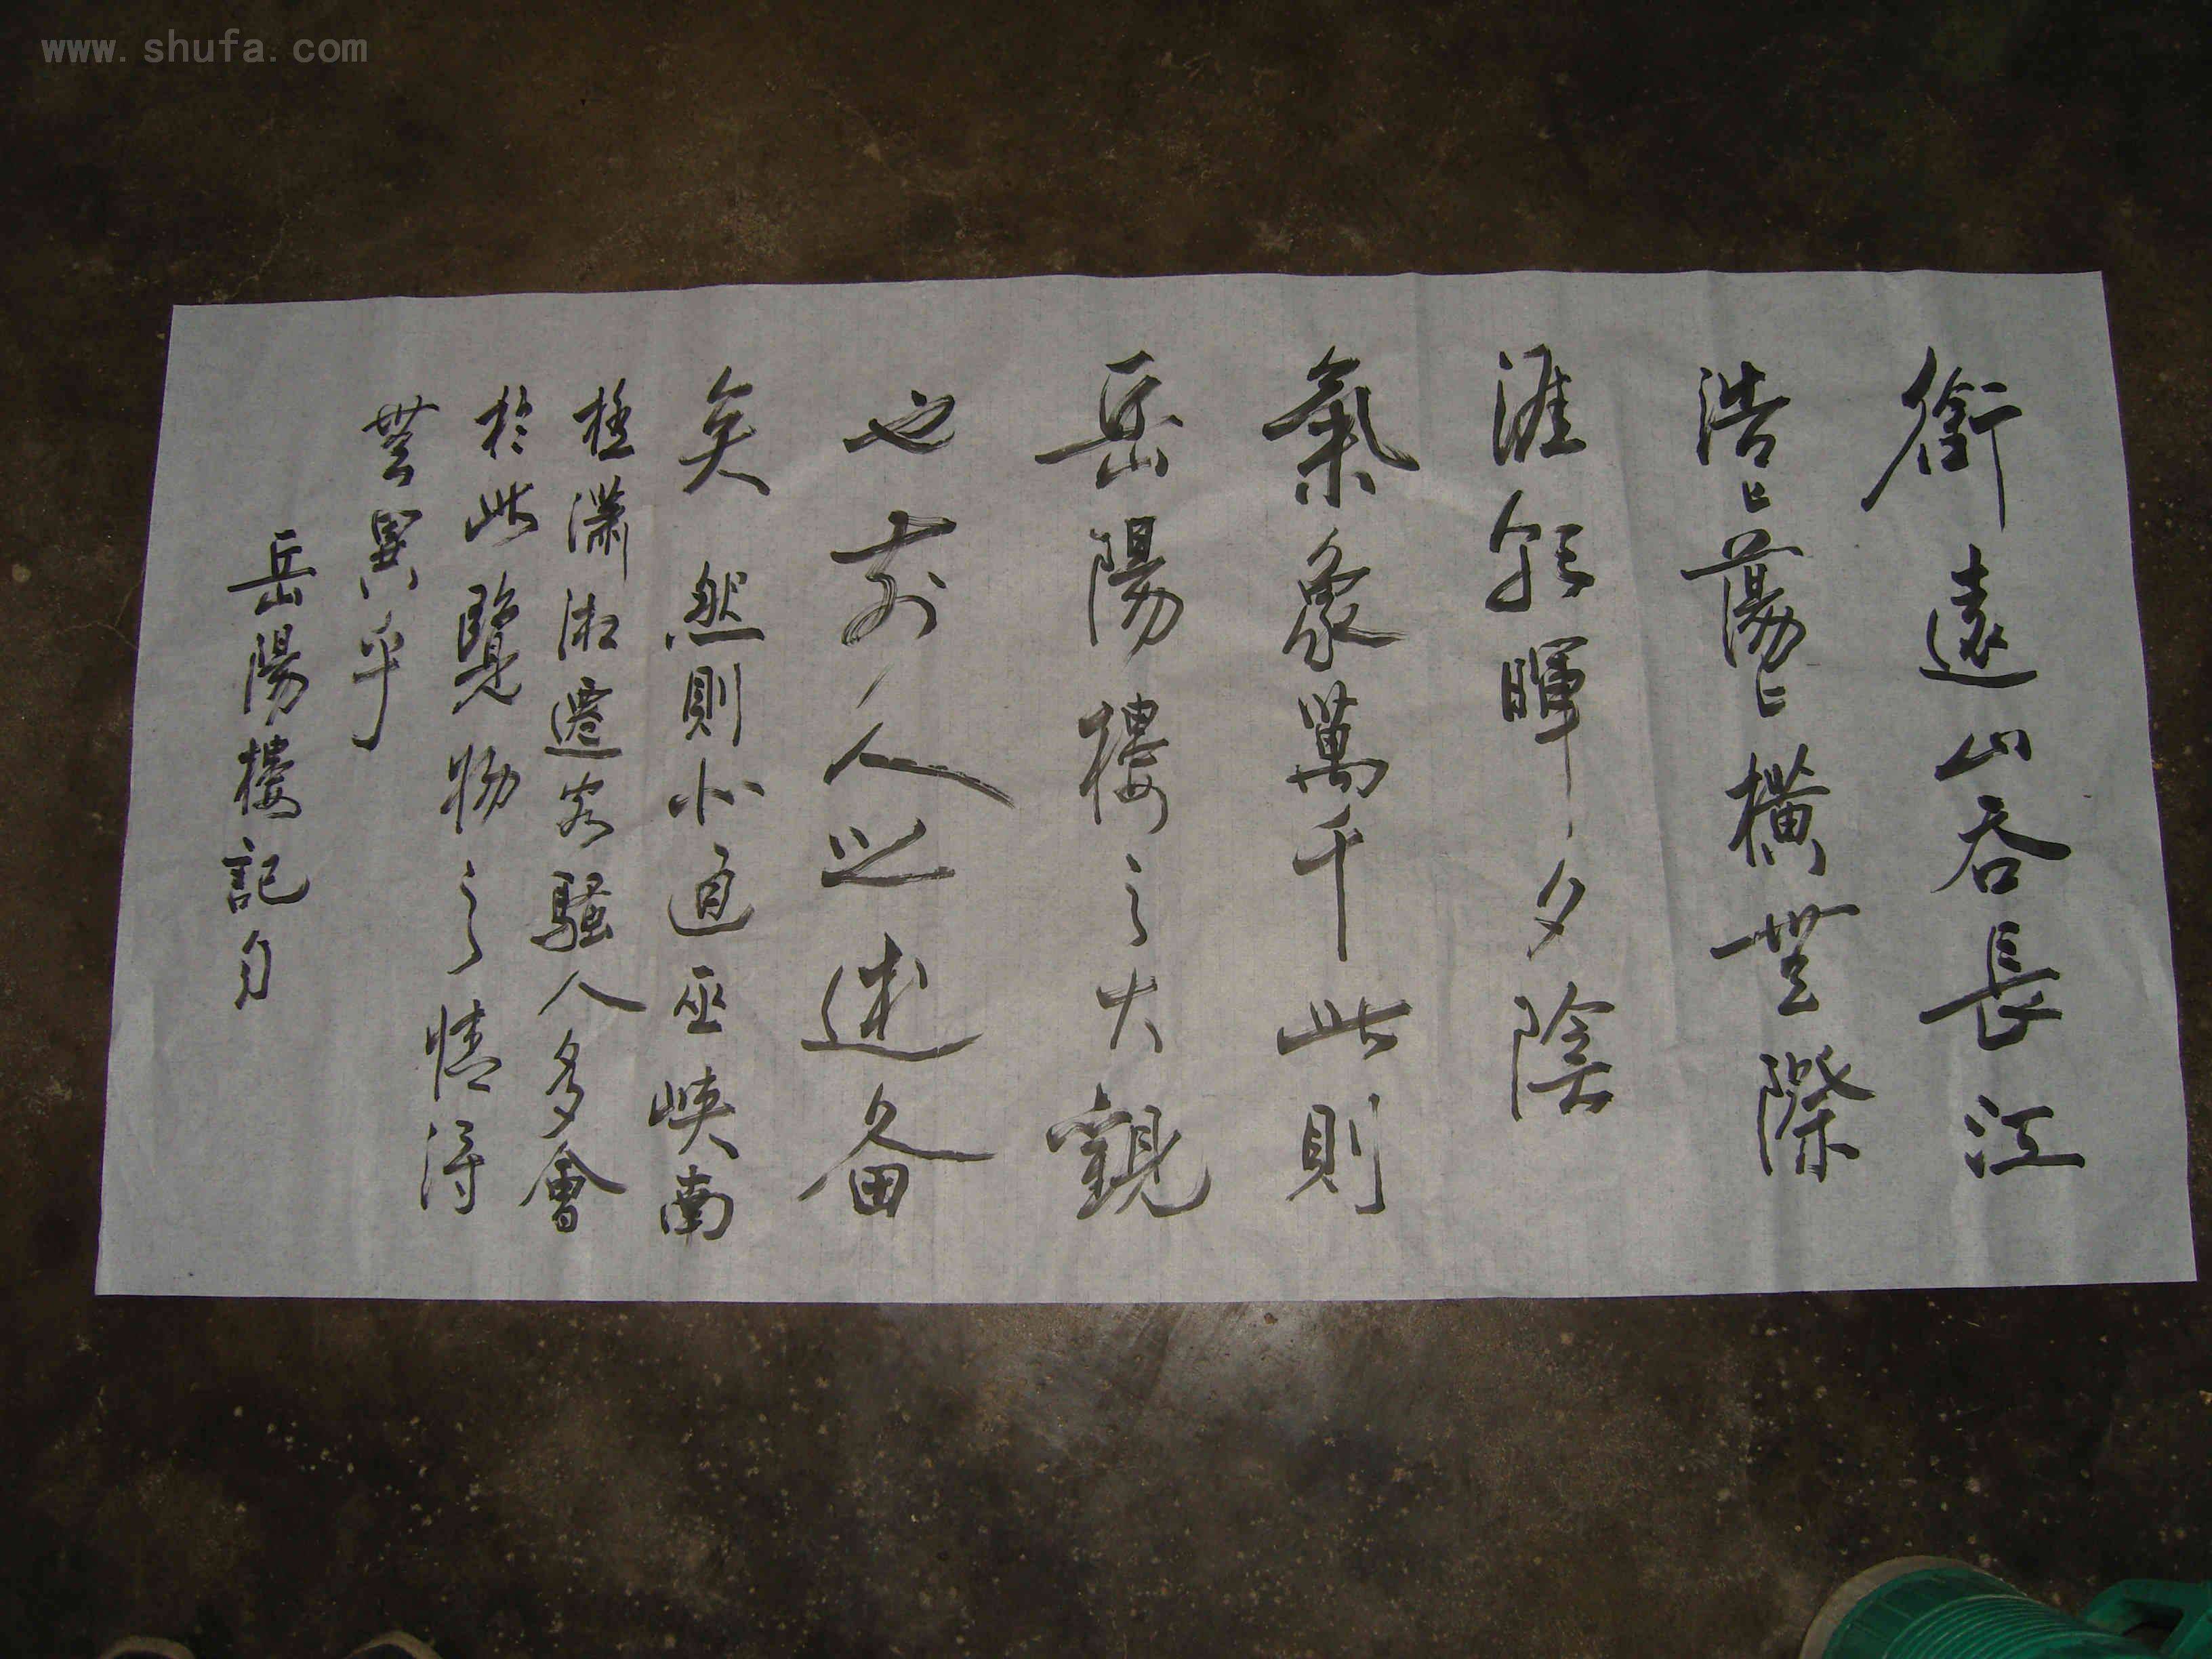 www.shufa.com
銜遠山吞長江
浩〻蕩〻橫無際
涯朝暉夕陰
氣象萬千此則
岳陽樓之大觀
也前人之述备
矣然則北通巫峽南
極瀟湘遷客騷人多會
於此覽物之情得
無異乎
岳陽樓記句